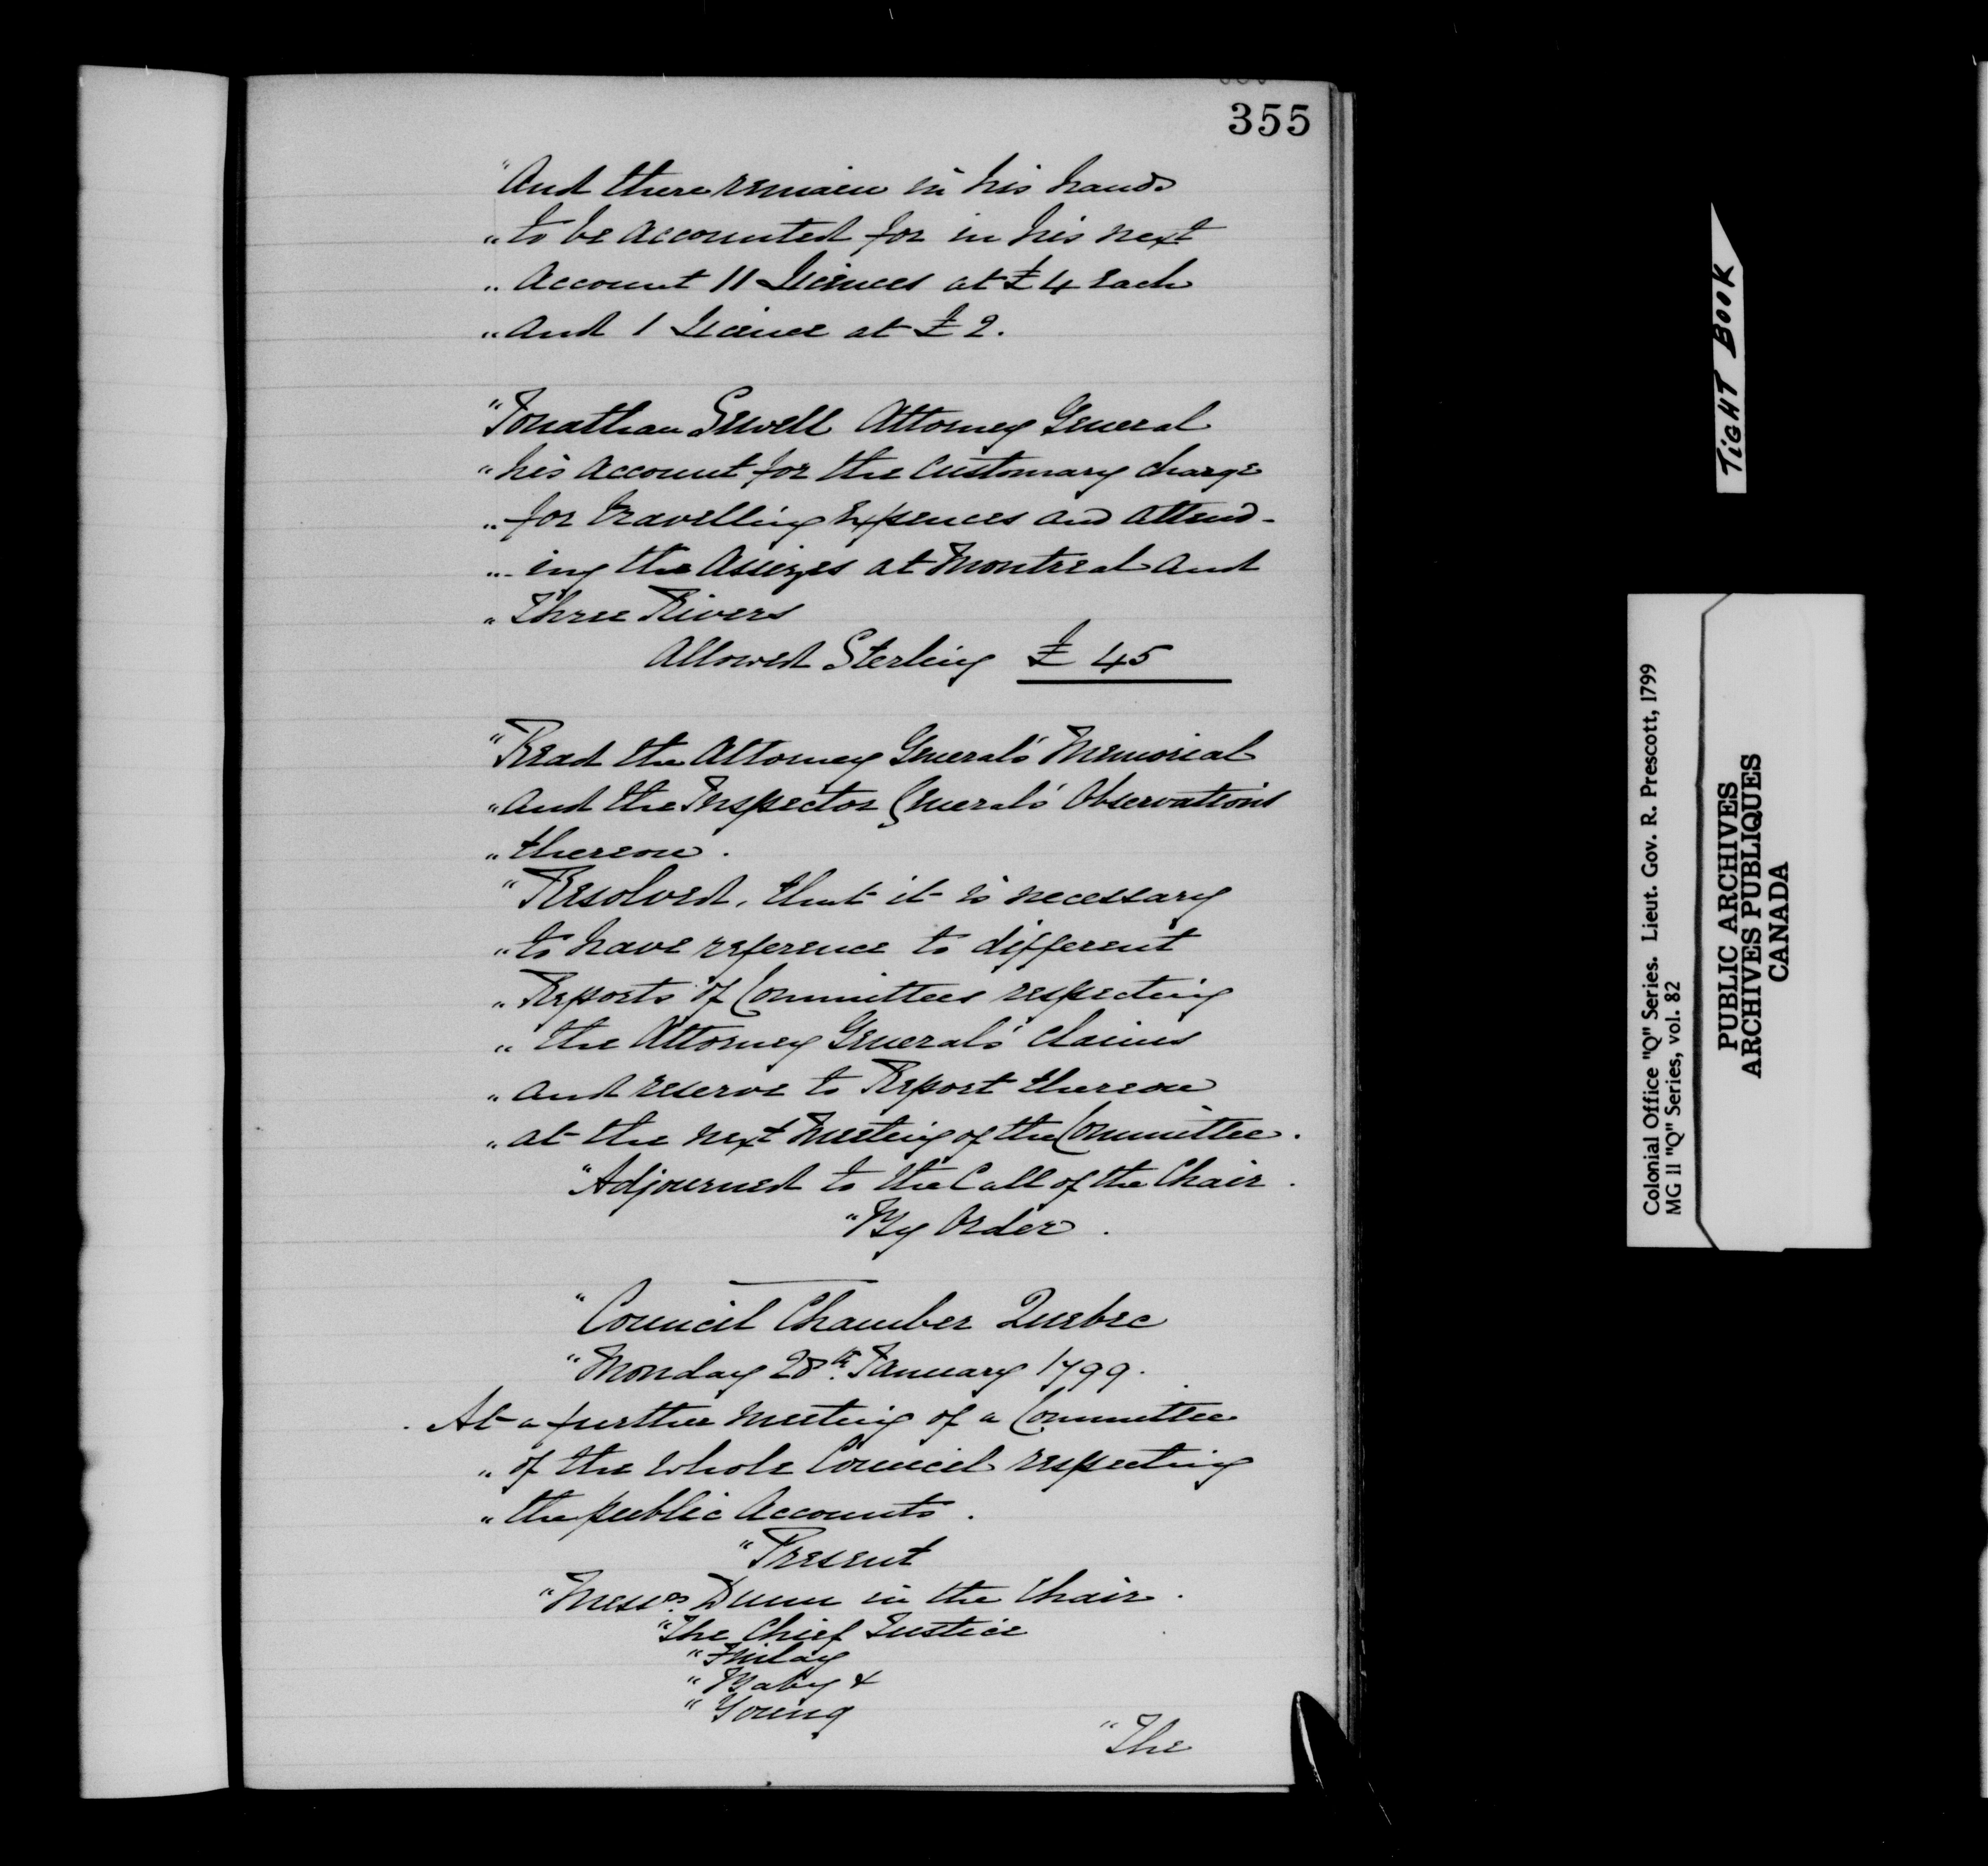 355
"And there remain in his hands
"to be accounted for in his next
"Account 11 Licences at £4 each
"and 1 Licence at £2.
"Jonathan Sewell Attorney General
"his account for the customary charge
"for travelling Expences and attend-
"ing the Assizes at Montreal and
"Three Rivers
Allowed Sterling £ 45
"Read the Attorney General's Memorial
"and the Inspector General's Observations
"thereon.
"Resolved, that it is necessary
"to have reference to different
"Reports of Committees respecting
"the Attorney General's claims
"and reserve to Report thereon
"at the next Meeting of the Committee.
"Adjourned to the Call of the Chair.
"By Order.
"Council Chamber Quebec
"Monday 28th. January 1799.
At a further Meeting of a Committee
"of the whole Council respecting
"the public Accounts.
"Present
"Messrs. Dunn in the Chair.
"The Chief Justice
"Finlay
"Baby &
"Young
"The
TIGHT BOOK
Colonial Office "Q" Series. Lieut. Gov. R. Prescott, 1799
MG 11 "Q" Series, vol. 82
PUBLIC ARCHIVES
ARCHIVES PUBLIQUES
CANADA